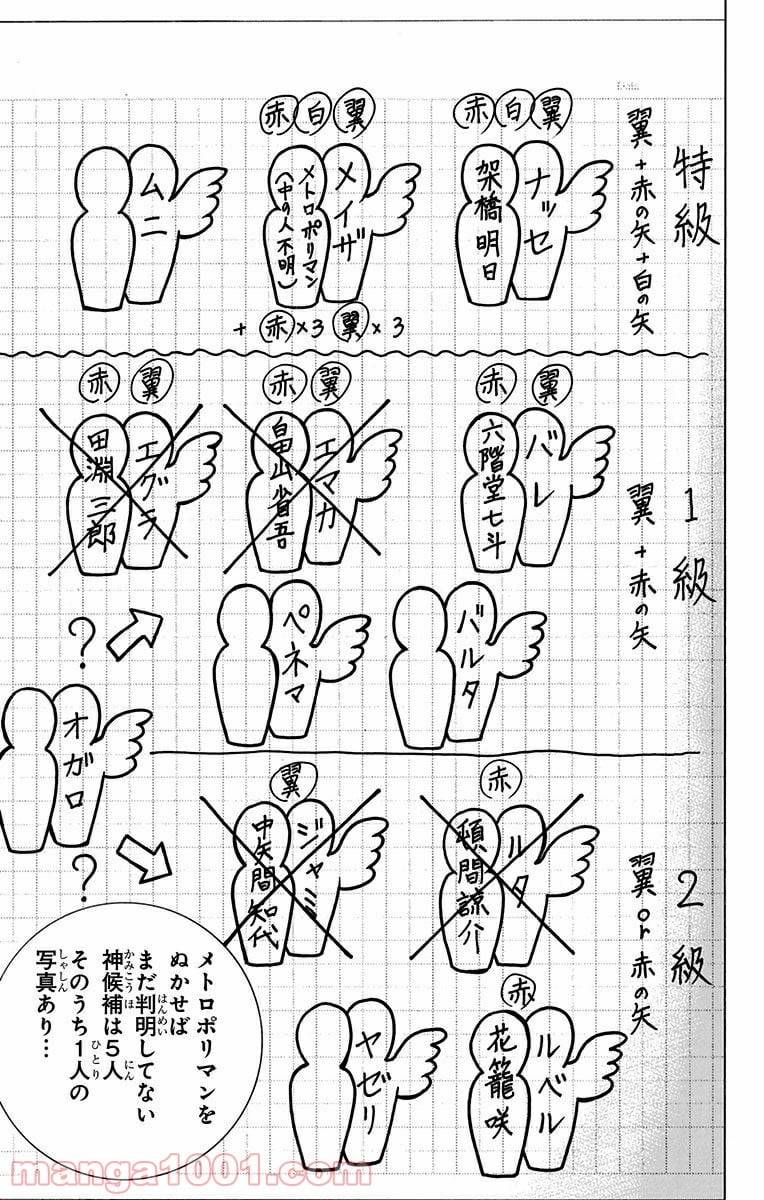 特級
翼+赤の矢+白の矢
赤 白 翼
ナッセ
架橋明日
赤 白 翼
メイザ
メトロポリマン
(中の人不明)
+赤×3 翼×3
ムニ
1級
翼+赤の矢
赤 翼
バレ
六階堂七斗
赤 翼
エマカ
畠山省吾
赤 翼
エグラ
田淵三郎
バルタ
ペネマ
?
オガロ
?
2級
翼or赤の矢
赤
ルタ
頓間諒介
翼
ジャミ
中矢間知代
赤
ルベル
花籠咲
ヤゼリ
メトロポリマンを
ぬかせば
まだ判明してない
はんめい
神候補は5人
かみこうほ
にん
そのうち1人の
ひとり
写真あり…
しゃしん
manga1001.com